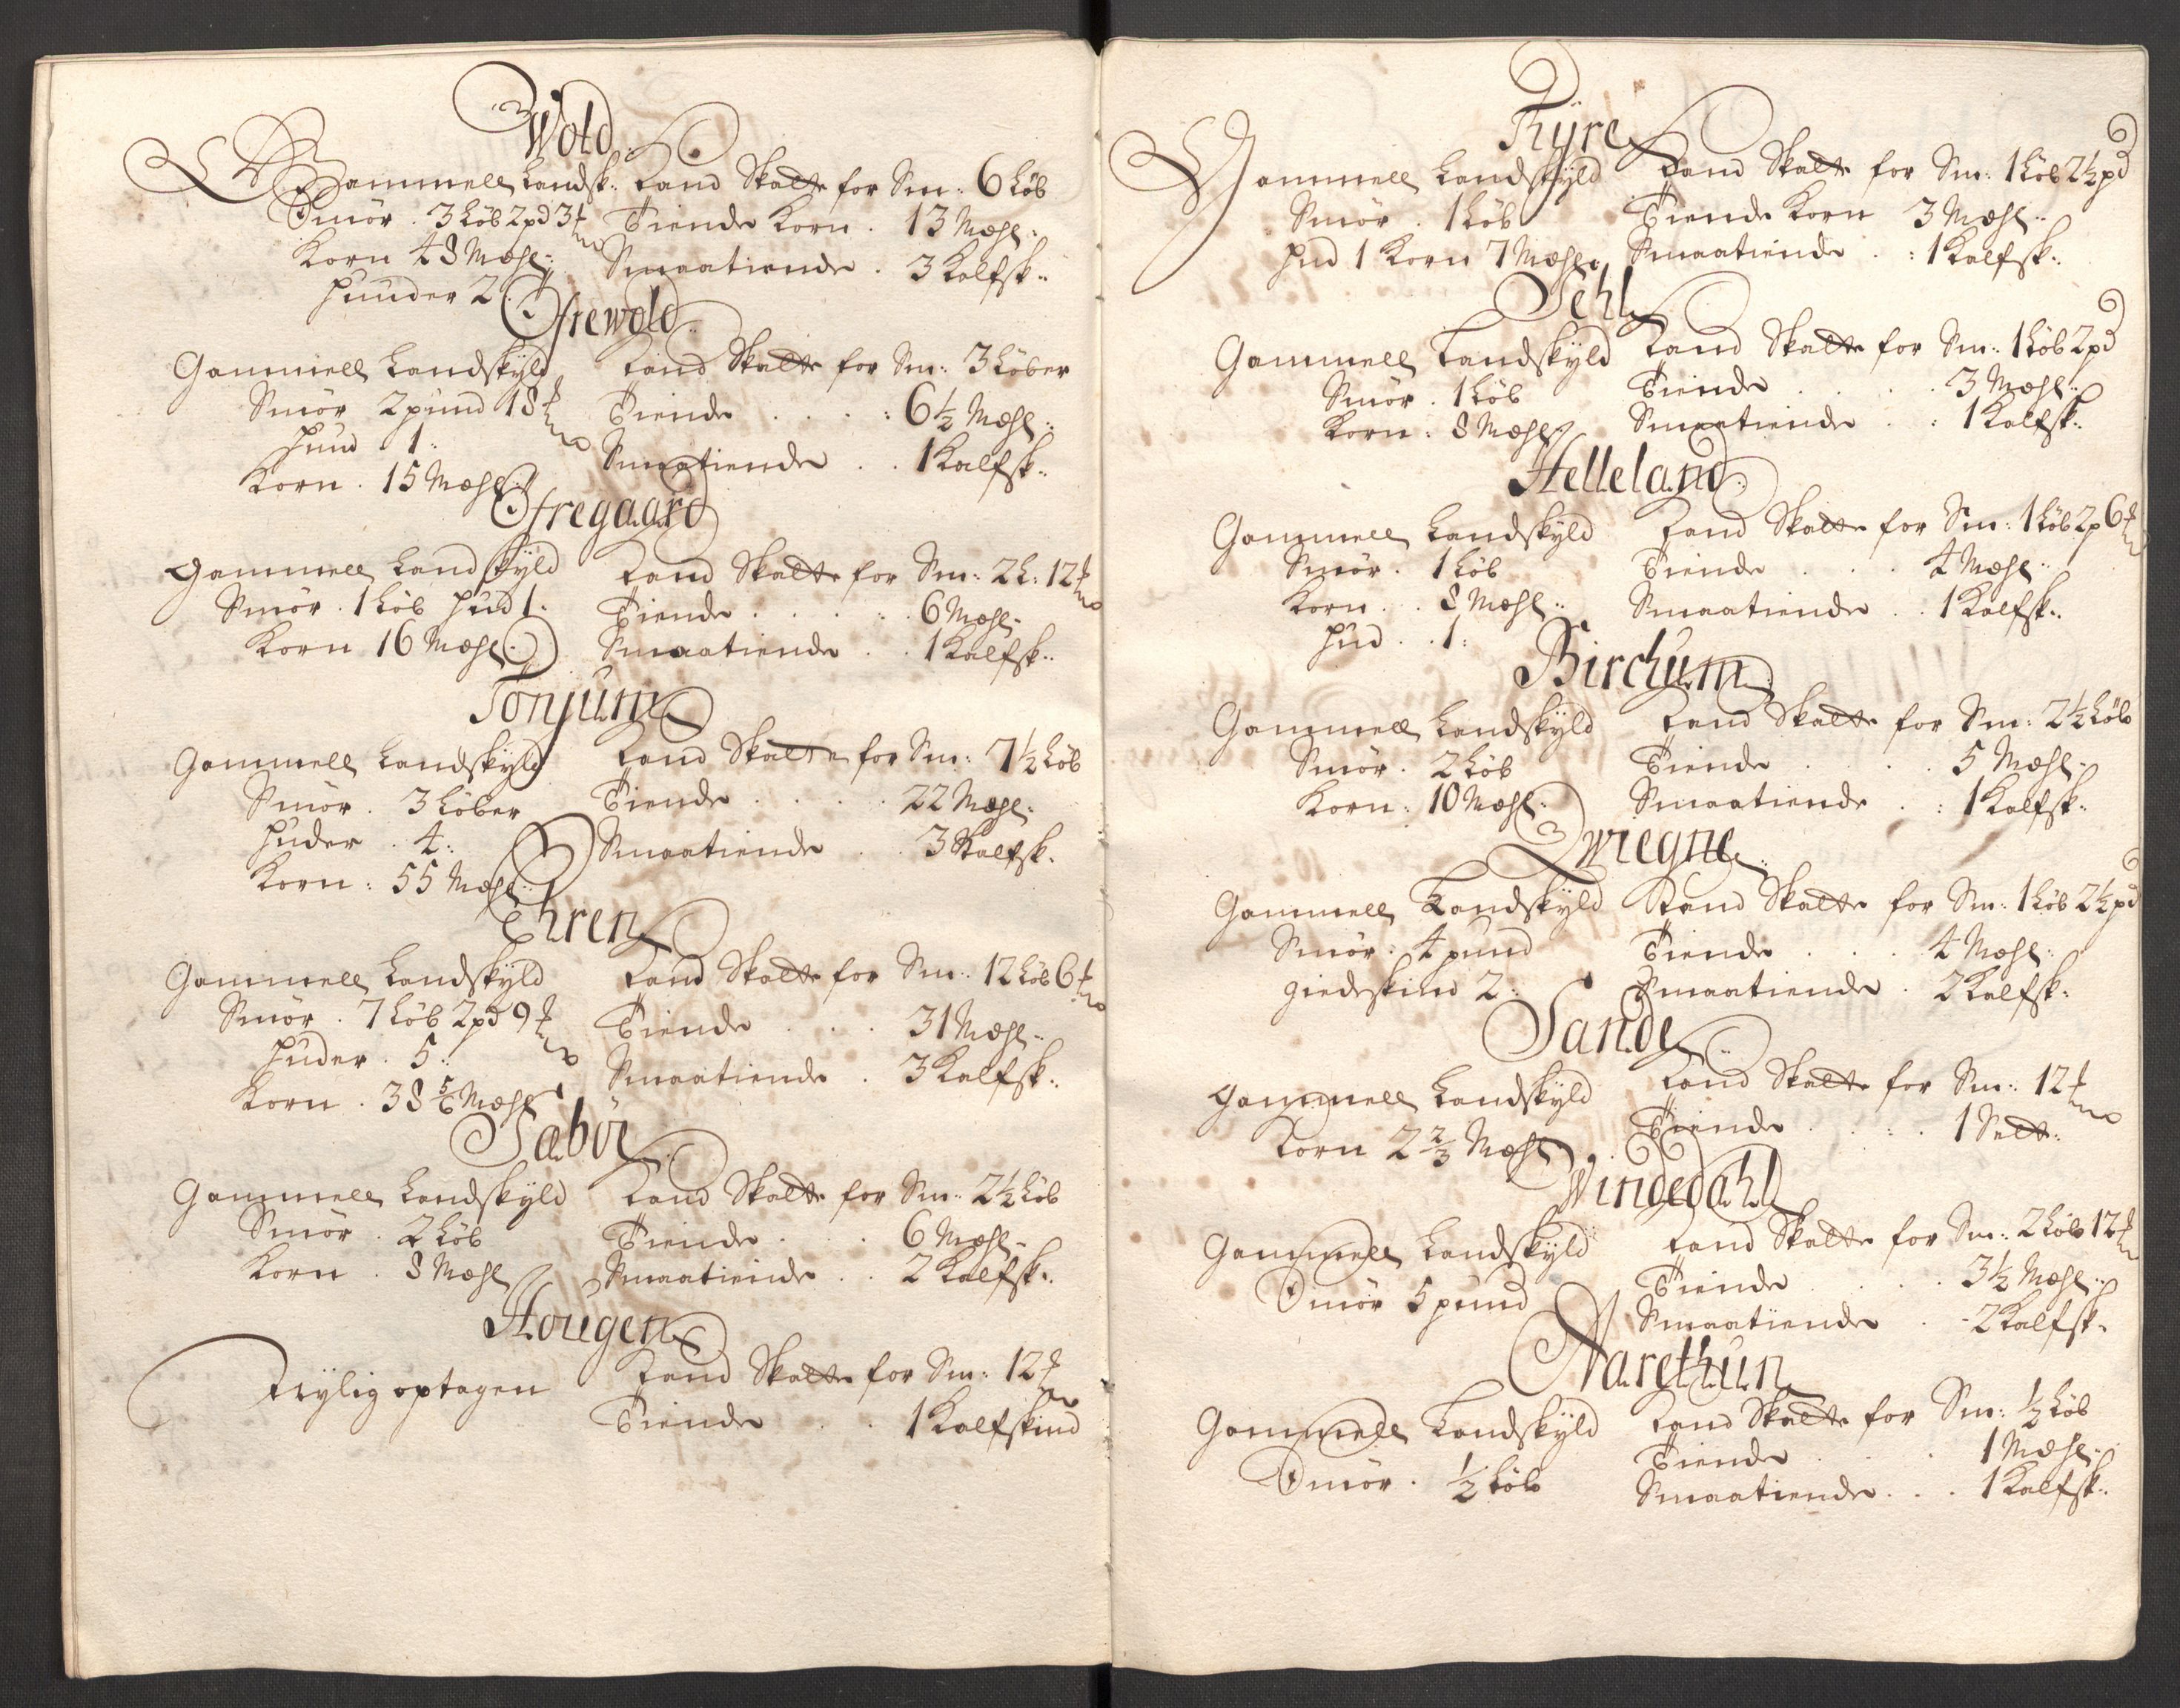 Wold
Gammell Landsk: Land Skatte for Sm: 6 Løb
Smør . 3 Løb 2 pd 3 ℔ Tiende Korn . 13 Mæhl:
Korn 48 Mæhl: Smaatiende . 3 Kalfsk:
Huuder 2
Ofrewold
Gammell Landskyld Land Skatte for Sm: 3 Løber
Smør 2 pund 18 ℔ Tiende . . . : 6½ Mæhl:
Huud 1: Smaatiende . . 1 Kalfsk:
Korn . 15 Mæhl:
Ofregaard
Gammell Landskyld Land Skatte for Sm: 2 L: 12 ℔
Smør . 1 Løb Hud 1. Tiende . . . . 6 Mæhl:
Korn 16 Mæhl: Smaatiende . . 1 Kalfsk:
Tonjum
Gammell Landskyld Land Skatte for Sm: 7½ Løb
Smør . 3 Løber Tiende . . . . 22 Mæhl:
Huder . 4: Smaatiende . . 3 Kalfsk.
Korn : 55 Mæhl:
Ehren
Gammell Landskyld Land Skatte for Sm: 12 Løb 6 ℔
Smør . 7 Løb 2 pd 9 ℔ Tiende . . . 31 Mæhl:
Huder . 5: Smaatiende . 3 Kalfsk:
Korn . 38 5/6 Mæhl
Sæbøe
Gammell Landskyld Land Skatte for Sm: 2½ Løb
Smør . 2 Løb Tiende . . . 6 Mæhl:
Korn . 8 Mæhl Smaatiende . . 2 Kalfsk:
Hougen
Nylig optagen Land Skatte for Sm: 12 ℔
Tiende . . 1 Kalfskind
Kyre
Gammell Landskyld Land Skatte for Sm: 1 Løb 2½ pd
Smør . 1 Løb Tiende Korn 3 Mæhl:
Hud 1 Korn 7 Mæhl: Smaatiende . : 1 Kalfsk:
Sehl
Gammell Landskyld Land Skatte for Sm: 1 Løb 2 pd
Smør . 1 Løb Tiende . . . . 3 Mæhl:
Korn : 8 Mæhl: Smaatiende . : 1 Kalfsk:
Helleland
Gammell Landskyld Land Skatte for Sm: 1 Løb 2 p 6 ℔
Smør . 1 Løb Tiende . . . 4 Mæhl:
Korn . . 8 Mæhl: Smaatiende . . 1 Kalfsk:
Hud . . 1:
Birchum
Gammell Landskyld Land Skatte for Sm: 2½ Løb
Smør . 2 Løb Tiende . . . . 5 Mæhl:
Korn : 10 Mæhl: Smaatiende . : 1 Kalfsk:
Qwiegne
Gammell Landskyld Land Skatte for Sm: 1 Løb 2½ pd
Smør : 4 pund Tiende . . . 4 Mæhl:
Giedeskind 2: Smaatiende . 2 Kalfsk:
Sande
Gammell Landskyld Land Skatte for Sm: 12 ℔
Korn 2 2/3 Mæhl Tiende . . : . 1 Selt:
Windedahl
Gammell Landskyld Land Skatte for Sm: 2 Løb 12 ℔
Smør 5 pund Tiende . . . 3½ Mæhl:
Smaatiende . - 2 Kalfsk.
Narethun
Gammell Landskyld Land Skatte for Sm: ½ Løb
Smør . ½ Løb Tiende . . . 1 Mæhl:
Smaatiende . . . 1 Kalfsk: